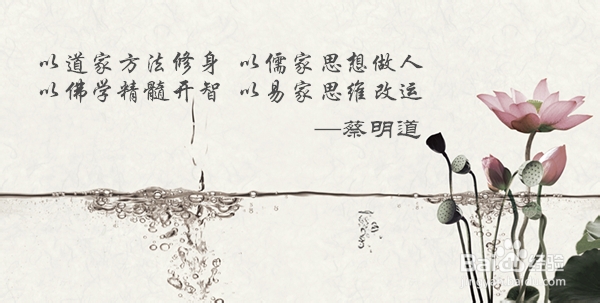 以道家方法修身 以儒家思想做人
以佛学精髓开智 以易家思维改运
—蔡明道
Baidu经验
jingyan.baidu.com